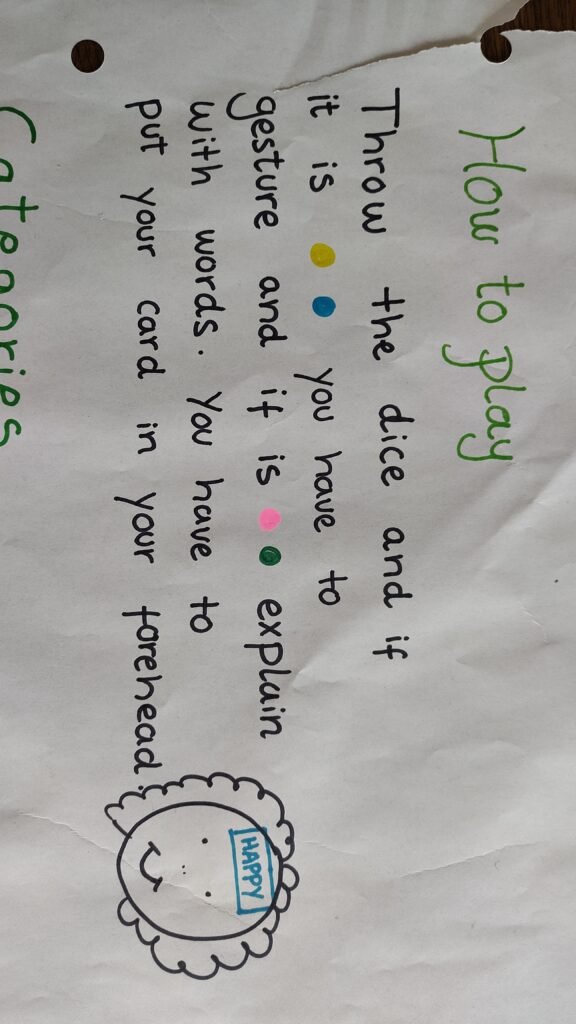 How to play
Throw the dice and if
it is you have to
gesture and if is explain
with words. You have to
put your card in your forehead.
HAPPY
Categories